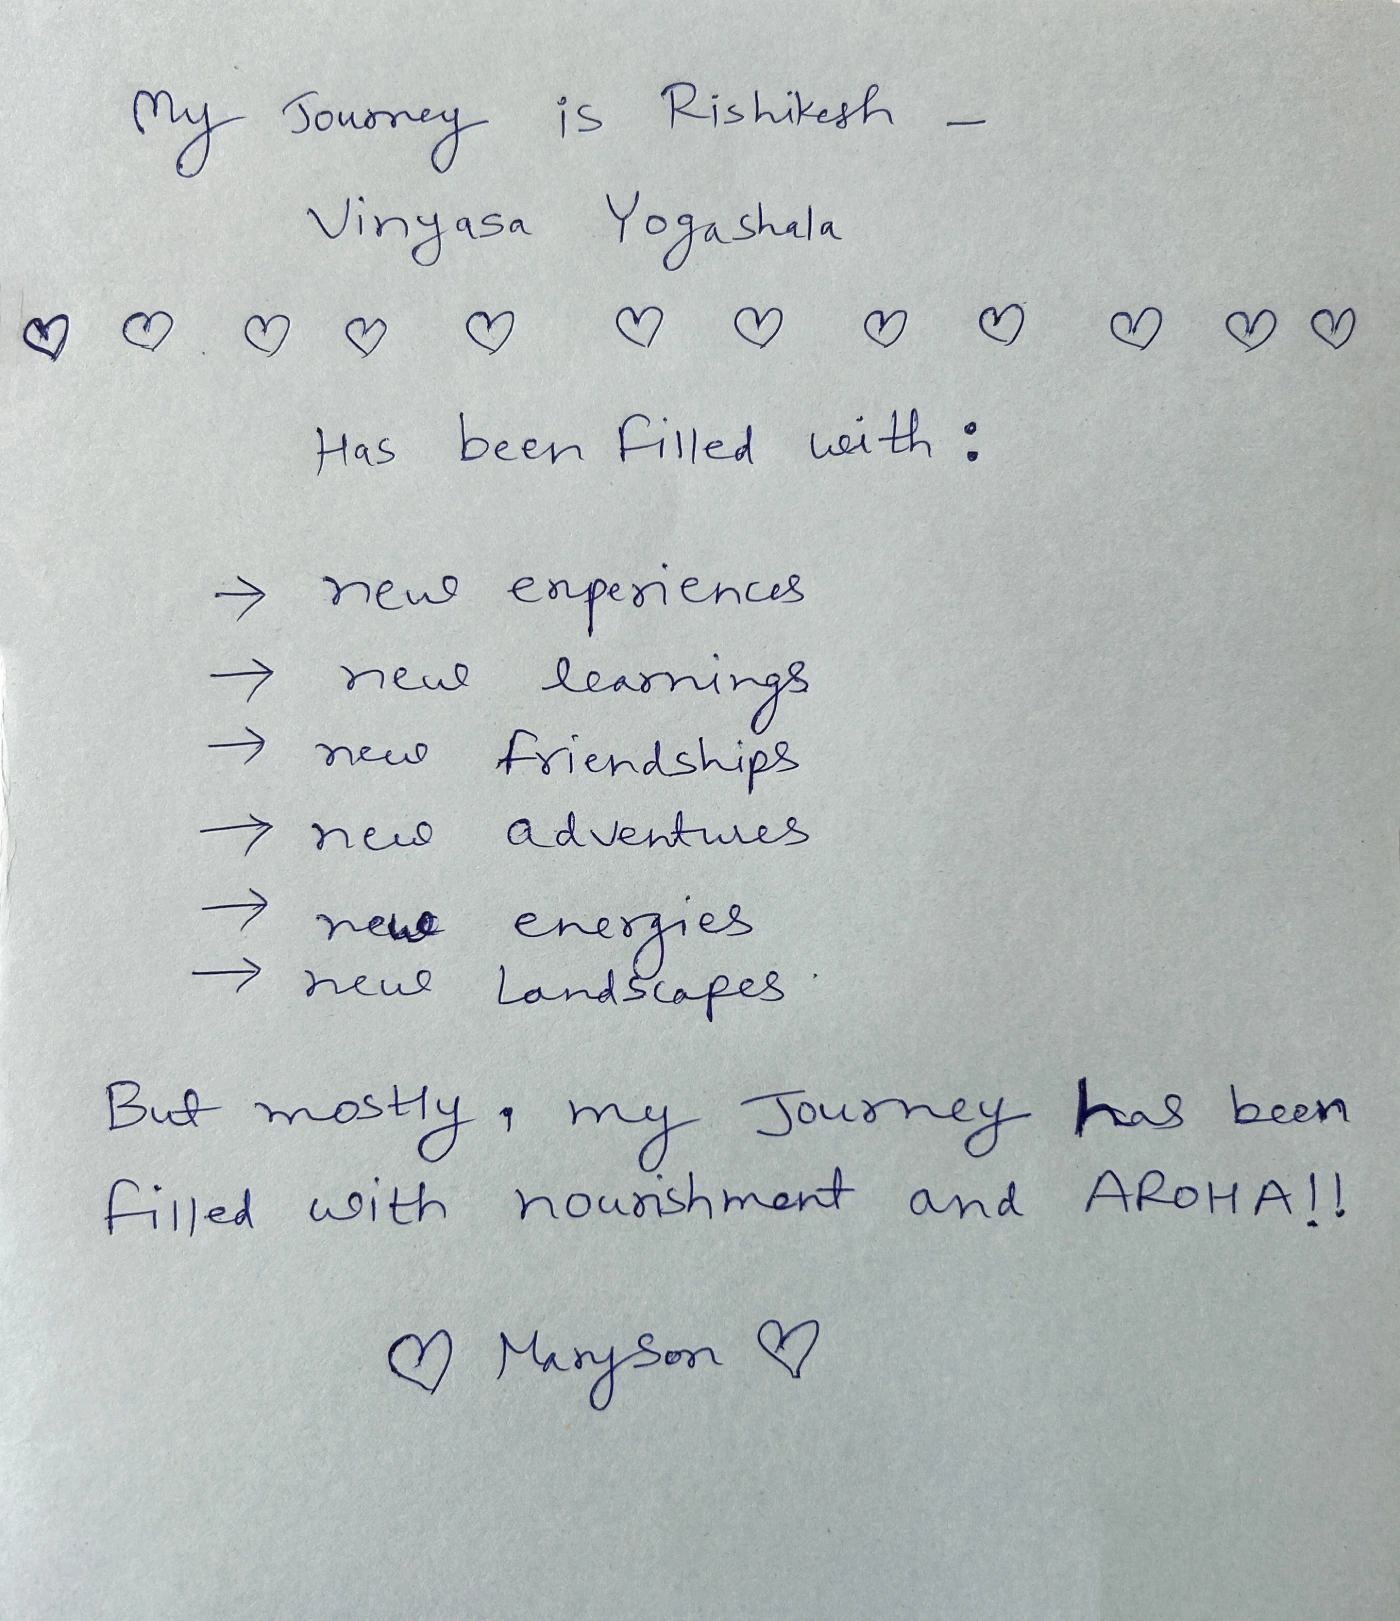 My Journey is Rishikesh –
Vinyasa Yogashala
♡ ♡ ♡ ♡ ♡ ♡ ♡ ♡ ♡ ♡ ♡ ♡
Has been filled with :
→ new experiences
→ new learnings
→ new friendships
→ new adventures
→ new energies
→ new Landscapes
But mostly, my Journey has been
filled with nourishment and AROHA!!
♡ Maryson ♡